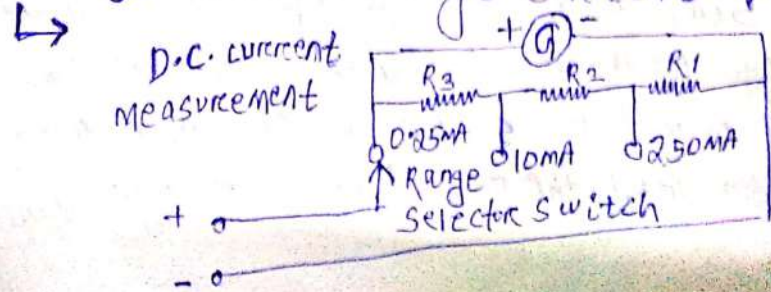 + G -
D.C. current
measurement
R3 R2 R1
0.25mA
10mA
250mA
Range
Selector Switch
+
-